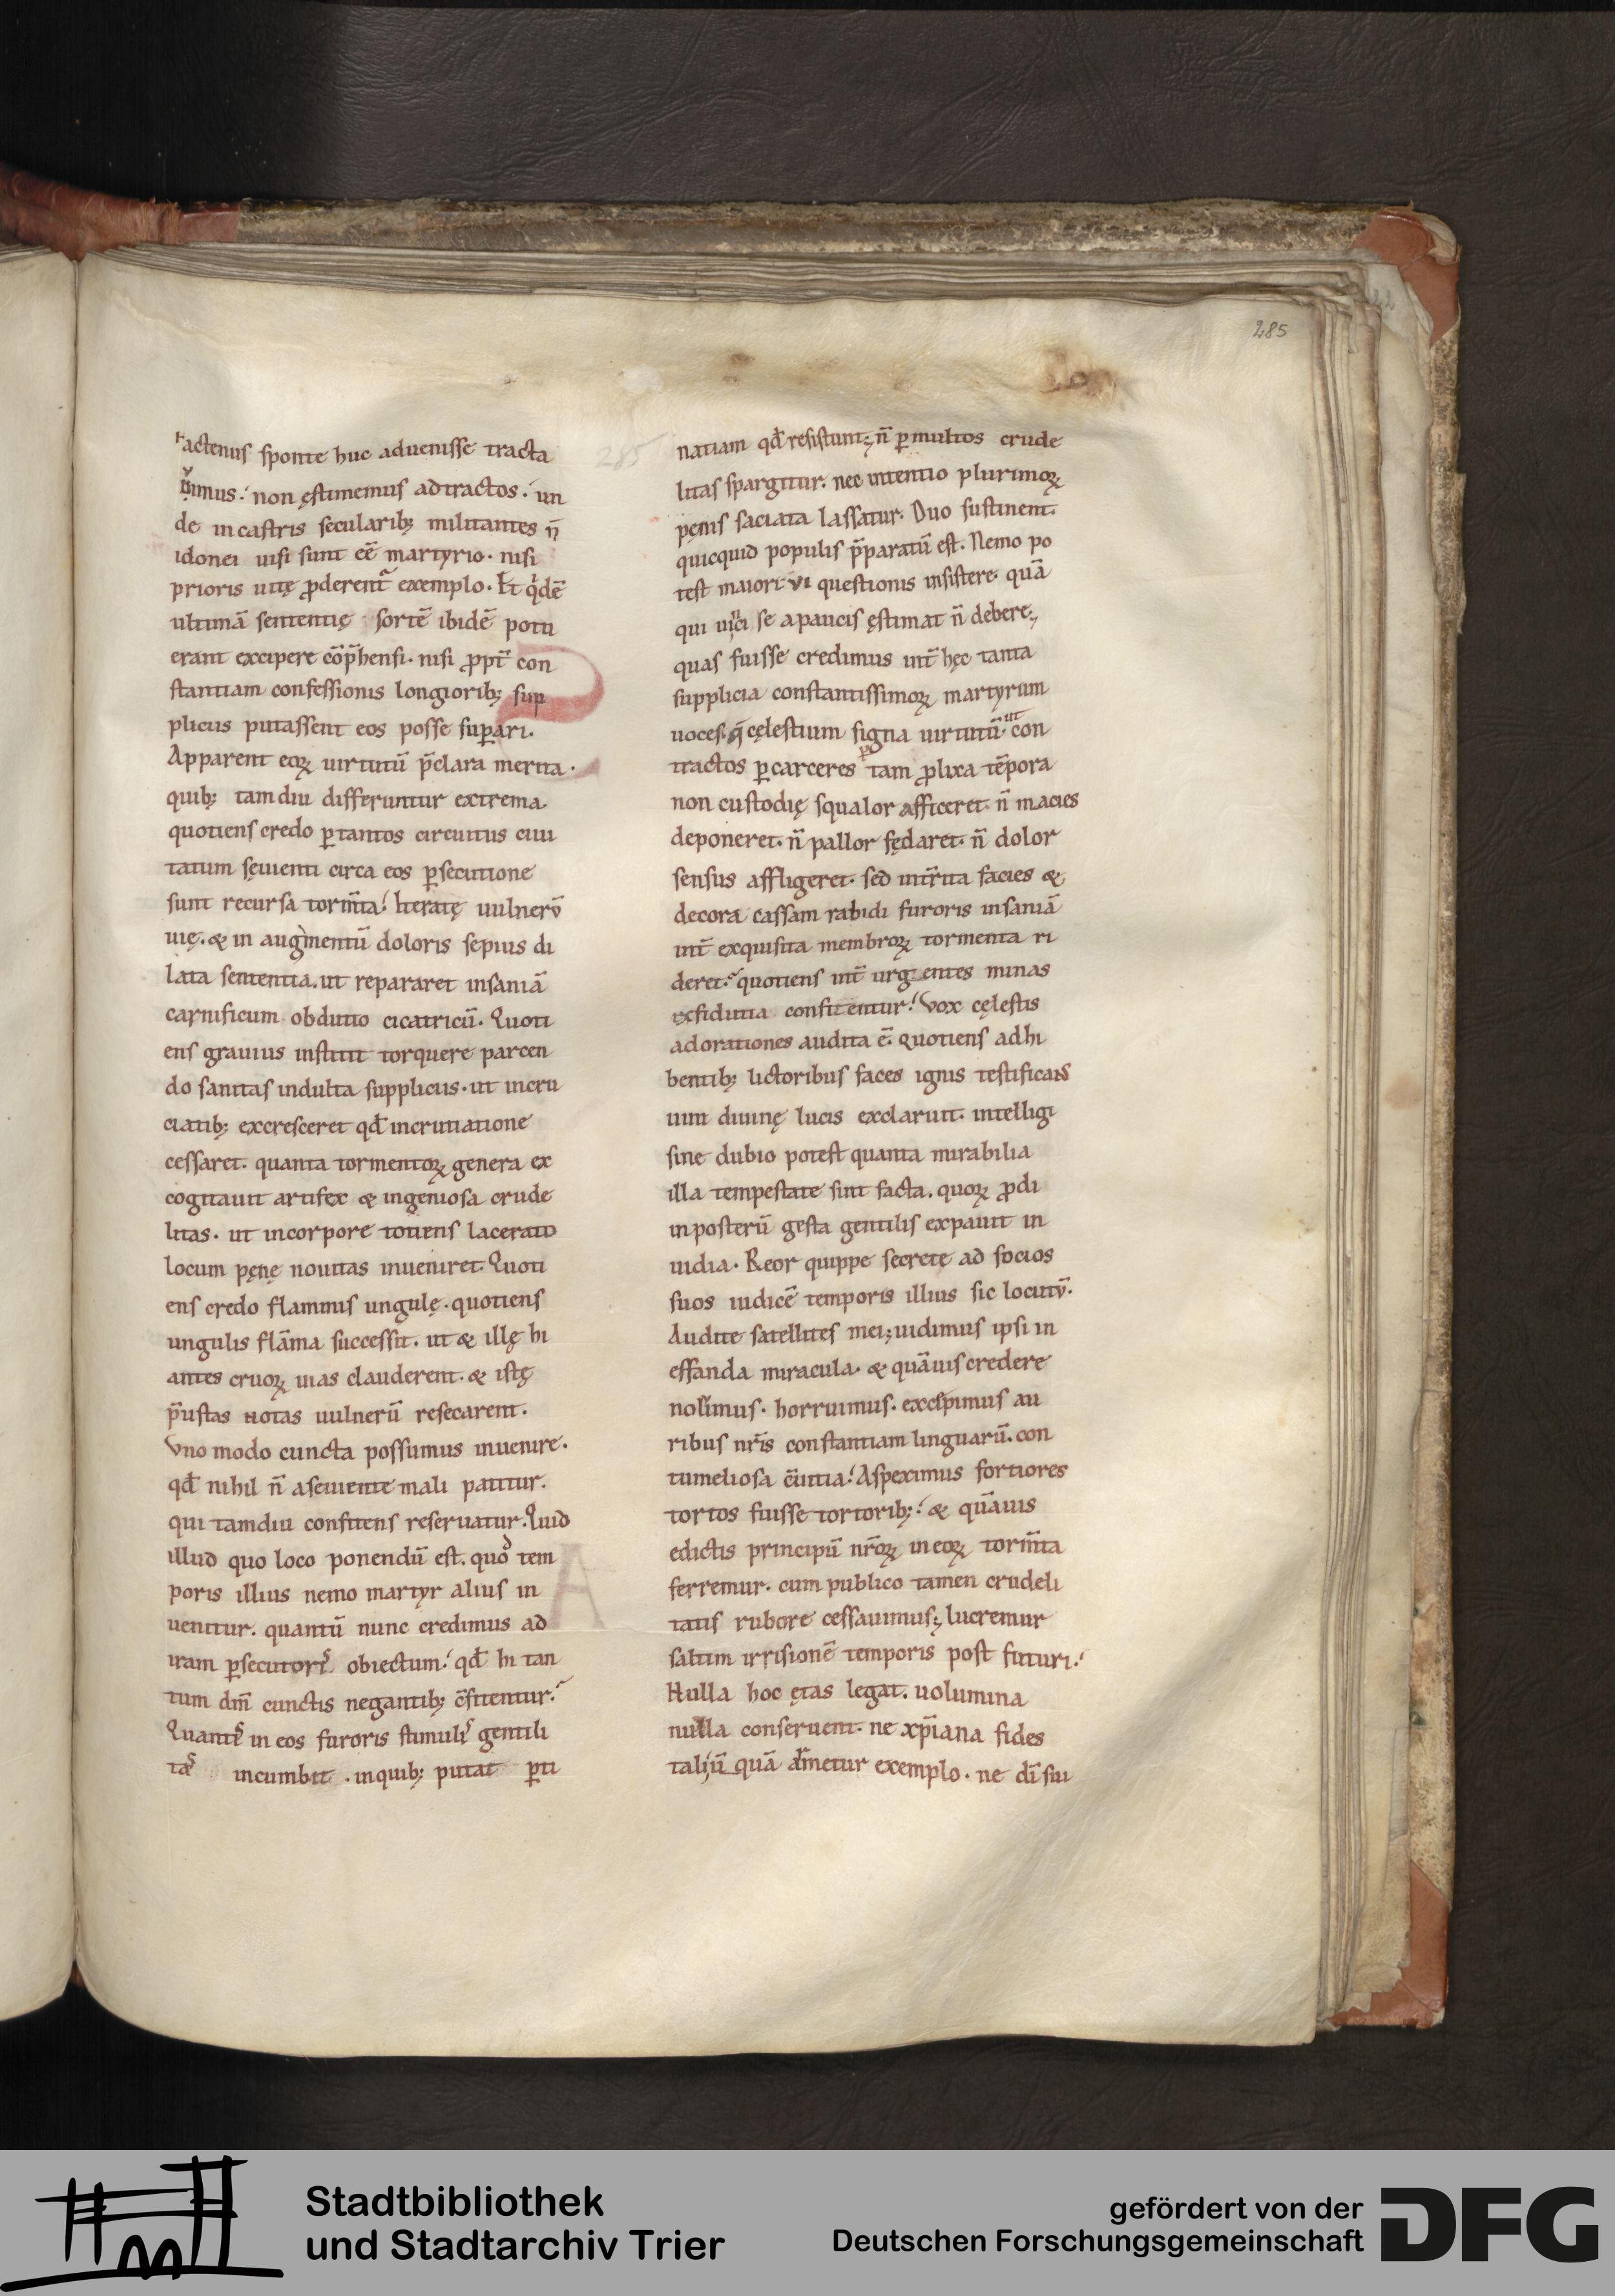 285
Hactenus sponte huc aduenisse tracta
uimus. non ęstimemus adtractos. un
de incastris secularib; militantes n̄
idonei uisi sunt eē martyrio. nisi
prioris uitę ꝓderent᷑ exemplo. Et qͥdē
ultimā sententię sortē ibidē potu
erant excipere cōp̄hensi. nisi ꝓpt̄ con
stantiam confessionis longiorib; sup
pliciis putassent eos posse suꝑari.
Apparent eoꝝ uirtutū p̄clara merita.
quib; tamdiu differuntur extrema.
quotiens credo ꝑtantos circuitus ciui
tatum sęuienti circa eos ꝑsecutione
sunt recursa torm̄ta. Iteratę uulnerū
uię. & in augmentū doloris sepius di
lata sententia. ut repararet insaniā
carnificum obductio cicatricū. Quoti
ens grauius instituit torquere parcen
do sanitas indulta suppliciis. ut incru
ciatib; excresceret qd̄ incruciatione
cessaret. quanta tormentoꝝ genera ex
cogitauit artifex & ingeniosa crude
litas. ut incorpore totiens lacerato
locum pęnę nouitas inueniret. Quoti
ens credo flammis ungulę. quotiens
ungulis flāma successit. ut & illę hi
antes cruoꝝ uias clauderent. & istę
p̄ustas notas uulnerū resecarent.
Vno modo cuncta possumus inuenire.
qd̄ nihil n̄ aseuiente mali patitur.
qui tamdiu confitens reseruatur. Quid
illud quo loco ponendū est. quod tem
poris illius nemo martyr alius in
uenitur. quantū nunc credimus ad
iram ꝑsecutoris obiectum. qd̄ hi tan
tum dnm̄ cunctis negantib; c̄fitentur.
Quantus in eos furoris stimulus gentili
tas incumbit. inquib; putat ꝑti
natiam qd̄ resistunt; n̄ ꝑmultos crude
litas spargitur. nec intentio plurimoꝝ
pęnis saciata lassatur. Duo sustinent
quicquid populis p̄paratū est. Nemo po
test maiori vi questionis insistere. quā
qui uinci se apaucis ęstimat n̄ debere;
quas fuisse credimus int̄ hęc tanta
supplicia constantissimoꝝ martyrum
uoces. q̄ cęlestium signa uirtutū. ut con
tractos ꝑcarceres tam ꝓlixa tēpora
non custodię squalor afficeret. n̄ macies
deponeret. n̄ pallor fędaret. n̄ dolor
sensus affligeret. sed int̄rita facies &
decora cassam rabidi furoris insaniā
int̄ exquisita membroꝝ tormenta ri
deret. quotiens int̄ urgentes minas
exfiducia confitentur. Vox cęlestis
adorationes audita ē. quotiens adhi
bentib; lictoribus faces ignis testificans
uim diuinę lucis exclaruit. intelligi
sine dubio potest quanta mirabilia
illa tempestate sint facta. quoꝝ ꝓdi
inposterū gesta gentilis expauit in
uidia. Reor quippe secrete ad socios
suos iudicē temporis illius sic locutū.
Audite satellites mei; uidimus ipsi in
effanda miracula. & quāuis credere
nolimus. horruimus. excepimus au
ribus nr̄is constantiam linguarū. con
tumeliosa c̄uitia. Aspeximus fortiores
tortos fuisse tortorib;. & quāuis
edictis principū nr̄oꝝ in eoꝝ torm̄ta
ferremur. cum publico tamen crudeli
tatis rubore cessauimus; lucremur
saltim irrisionē temporis post futuri.
Nulla hoc ętas legat. uolumina
nulla conseruent. ne xp̄iana fides
taliū quā armetur exemplo. ne dī siu
Stadtbibliothek
und Stadtarchiv Trier
gefördert von der
Deutschen Forschungsgemeinschaft
DFG